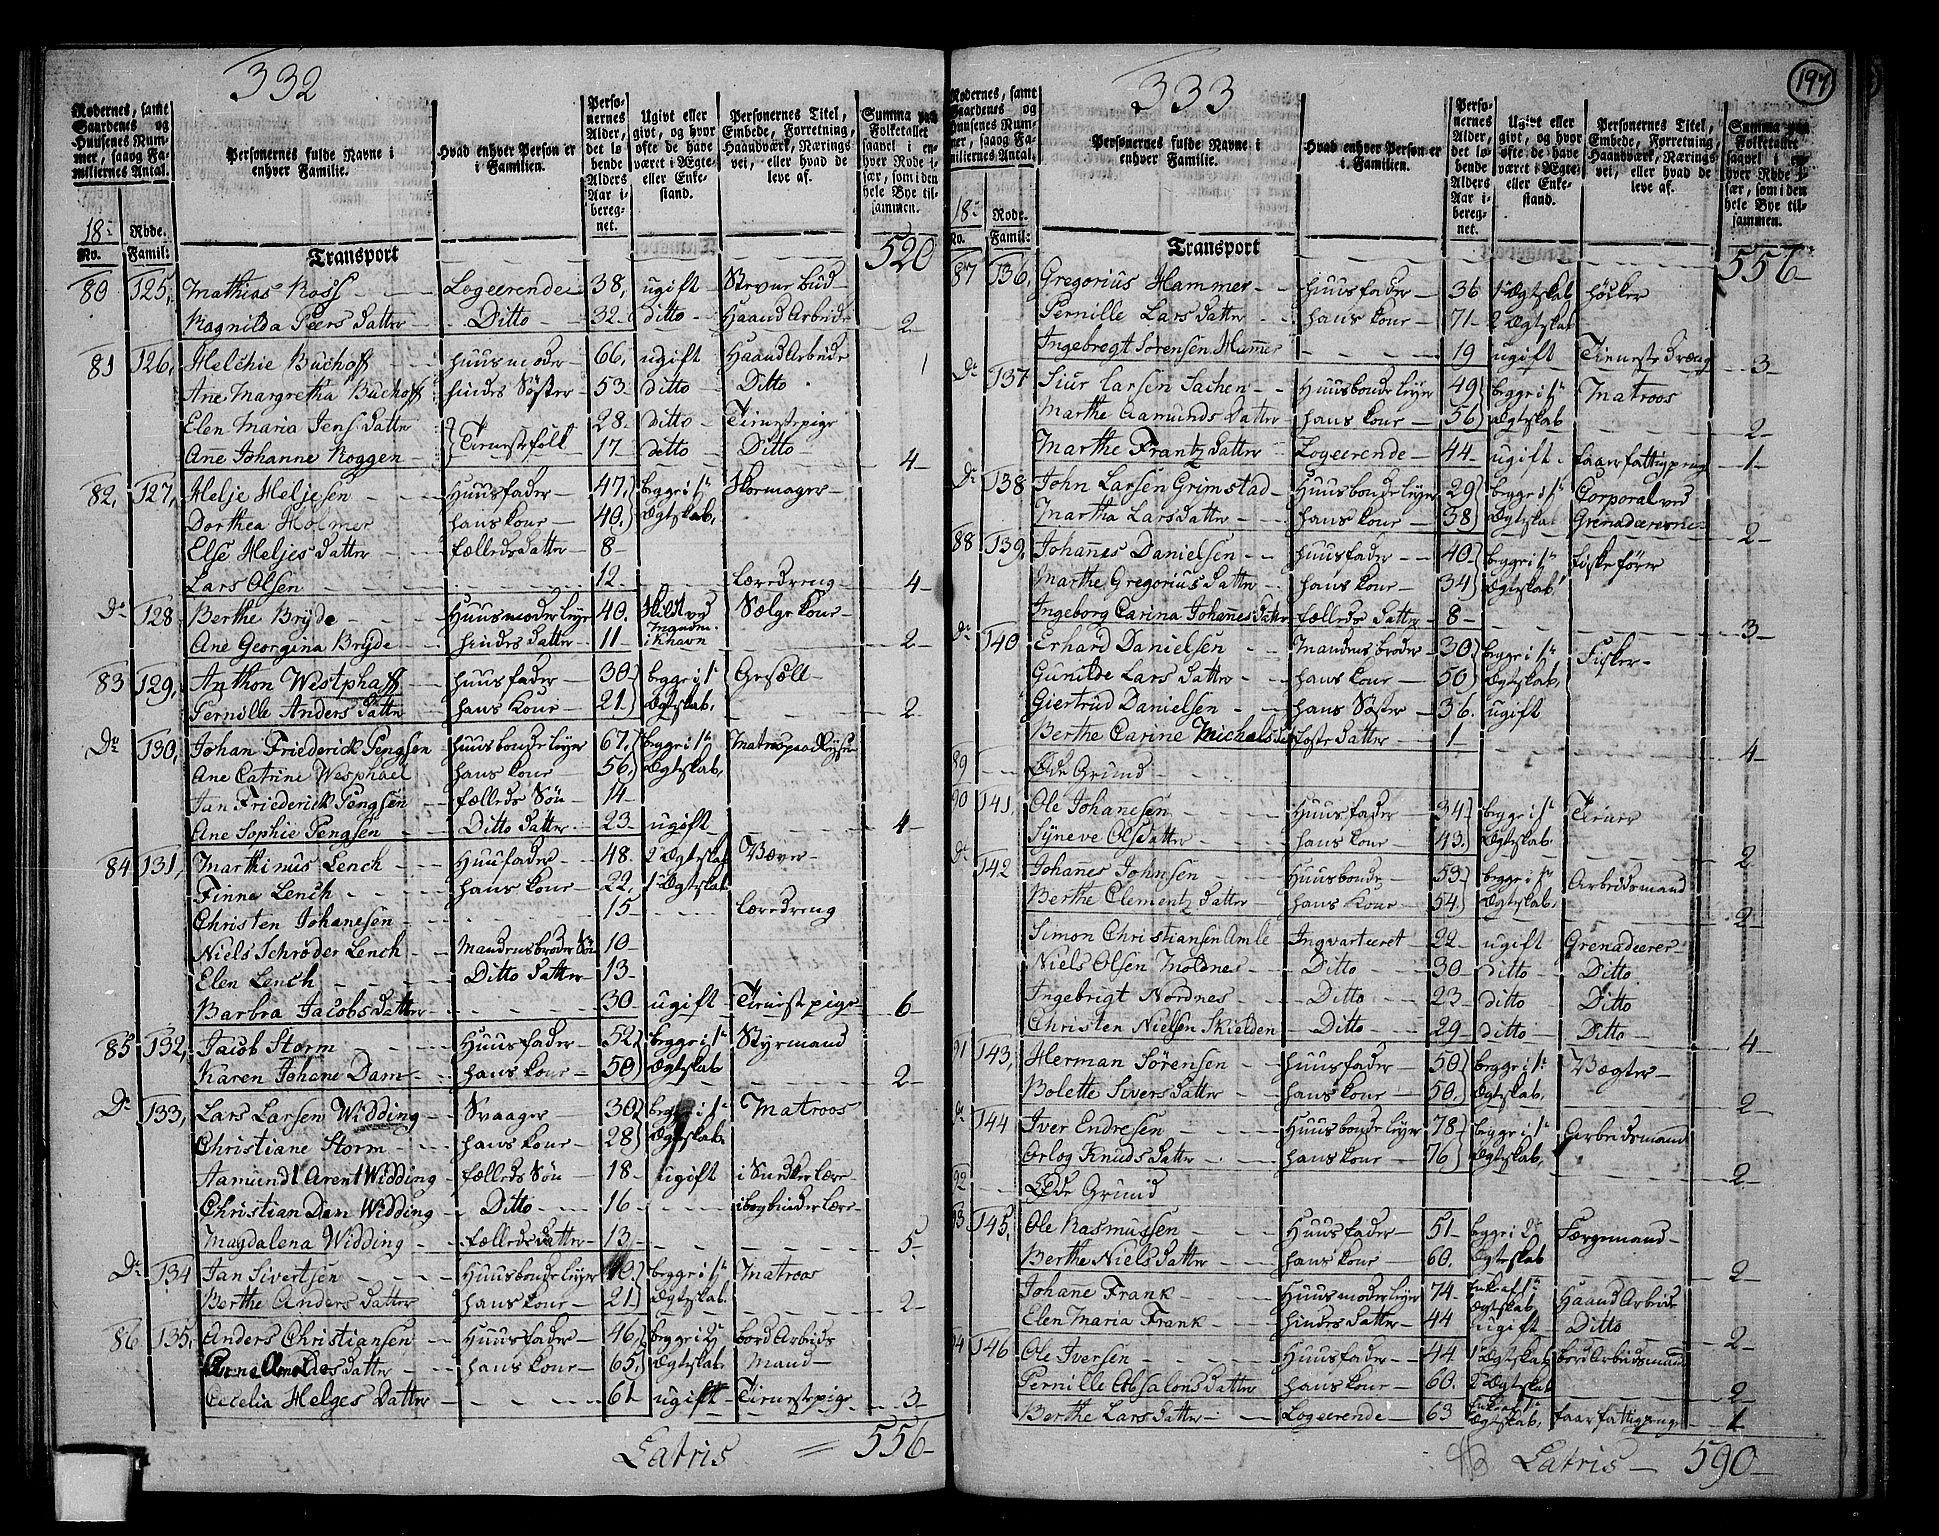 332
Rodernes, samt Gaardenes og Huusenes Nummer, saavog Familiernes Antal.
Personernes fulde Navne i enhver Familie.
Hvad enhver Person er i Familien.
Personernes Alder, det løbende Alders Aar iberegnet.
Ugivt eller givt, og hvor ofte de have været i Ægte- eller Enkestand.
Personernes Titel, Embede, Forretning, Haandværk, Næringsvei, eller hvad de leve af.
Summa paa Folketallet saavel i enhver Rode især, som i den hele Bye tilsammen.
18: Rode.
No. Famil: Transport 520
80 125, Mathias Ross Logeerende 38, ugift Stevnebud
Ragnilda Peers Datter Ditto 32 ditto HaandArbeide 2
81 126, Melchie Buchoff huusmoder 66, ugift HaandArbeide 1
Ane Margretha Buchoff hindes Söster 53 ditto Ditto
Elen Maria Jens Datter Tienestefolk 28 ditto Tienestepige
Ane Johanne Roggen 17 ditto Ditto 4
82, 127, Helje Heljesen Huusfader 47, begge i 1e Skomager
Dorthea Holmer hans kone 40. Ægtskab,
Else Heljes Datter fælleds datter 8
Lars Olsen 12 læredreng 4
Do 128 Berthe Brÿde Huusmoder leyer 40. Skilt ved Sælgekone
Ane Georgina Brÿde hindes datter 11 Manden i Khavn 2
83 129, Anthon Westphaff huusfader 30 begge i 1e Gesælt
Pernille Anders Datter hans Kone 21 Ægtskab, 2
Do 130, Johan Friederick Pengsen huusbonde leyer 67, begge i 1e Matros
Ane Catrine Wesphael hans kone 56, Ægtskab,
Jan Friederick Pengsen fælleds Sön 14
Ane Sophie Pengsen Ditto datter 23 ugift 4
84 131, Marthinus Lench Huusfader 48 2 Ægtskab Væver
Finne Lench hans kone 22, 1 Ægtskab
Christen Johanesen 15 læredreng
Niels Schrøder Lench Mandens broder Sön 10
Elen Lench Ditto Datter 13
Barbra Jacobs datter 30 ugift Tienestpige 6
85 132, Jacob Storm Huusfader 52 begge i 1e Styrmand
Karen Johane Dam hans kone 50 Ægtskab 2
Do 133, Lars Larsen Widding Svaager 30 begge i 1e Matroos
Christiane Storm hans kone 28 Ægtskab
Aamund Arent Widding fælleds Sön 18 ugift i Snedkerlære
Christian Dam Widding Ditto 16 i bogbinderlære
Magdalena Widding fælleds datter 13 5
Do 134 Jan Sivertsen Huusbonde leyer begge i 1e Matroos
Berthe Anders datter hans kone 21 Ægtskab 2
86 135, Anders Christiansen Huusfader 46 begge i 2 bordArbeids
datter hans kone 65 Ægtskab Mand
Cecelia Helges Datter 61 ugift Tienestepige 3
Latris = 556
333
197
Rodernes, samt Gaardenes og Huusenes Nummer, saavog Familiernes Antal.
Personernes fulde Navne i enhver Familie.
Hvad enhver Person er i Familien.
Personernes Alder, det løbende Alders Aar iberegnet.
Ugivt eller givt, og hvor ofte de have været i Ægte- eller Enkestand.
Personernes Titel, Embede, Forretning, Haandværk, Næringsvei, eller hvad de leve af.
Summa paa Folketallet saavel i enhver Rode især, som i den hele Bye tilsammen.
18: Rode.
No. Famil: Transport 556
87 136, Gregorius Hammer huusfader 36 1 Ægtskab höcker
Pernille Lars Datter hans kone 71 2 Ægtskab
Ingebregt Sørensen Hammer 19 ugift Tienestedræng 3
Do 137 Siur Larsen Sachen Huusbonde leyer 49 begge i 1e Matroos
Marthe Aamunds Datter hans kone 56 Ægtskab 2
Marthe Frantz datter Logeerende 44 ugift faar fattigpeng 1
Do 138 John Larsen Grimstad Huusbonde leyer 29 begge i 1e Corporal ved
Martha Lars datter hans kone 38 Ægtskab Grenadererne 2
88 139, Johanes Danielsen huusfader 40 begge i 1e fiskefører
Marthe Gregorius Datter hans kone 34 Ægtskab
Ingeborg Carina Johannes datter fælleds datter 8 3
Do 140 Erhard Danielsen Mandens broder 30 begge i 1e Fisker
Gunilde Lars Datter hans kone 50 Ægtskab,
Giertrud Danielsen hans Söster 36. ugift
Berthe Carine Michels foste datter 1 4
89 Øde Grund
90 141, Ole Johanesen Huusfader 34 begge i 1e Tiener
Sÿneve Olsdatter hans kone 43 Ægtskab 2
Do 142 Johanes Johnsen Huusbonde 53 begge i 1e Arbeidsmand
Berthe Clementz Datter hans kone 54 Ægtskab. 2
Simon Christiansen Amle Ingvarteeret 22 ugift Grenadeerer
Niels Olsen Moldnes Ditto 30 ditto Ditto
Ingebrigt Nordnes Ditto 23 ditto Ditto
Christen Nielsen Skielden Ditto 29 ditto Ditto 4
91 143, Herman Sørensen huusfader 50 begge i 1e Vægter
Bolette Sivers datter hans kone 50. Ægtskab, 2
Do 144 Iver Endresen Huusbonde leyer 78 begge i 1e Arbeidsmand
Orlog Knuds datter hans kone 76 Ægtskab, 2
92 Øde Grund
93 145, Ole Rasmussen Huusfader 51 begge i 2e Færgemand
Berthe Niels datter hans kone 60. Ægtskab 2
Johane Frank Huusmoder leyer 74 Enke af 1e Ægtskab HaandArbeide
Elen Maria Frank hindes datter 44 ugift Ditto 2
94 146 Ole Iversen Huusfader 44 1 Ægtskab bordArbeidsmand
Pernille Absalons datter hans kone 60. 2 Ægtskab 2
Berthe Lars datter Logeerende 63 Enke af 1e Ægtskab, faar fattigpenge 1
Latris 590